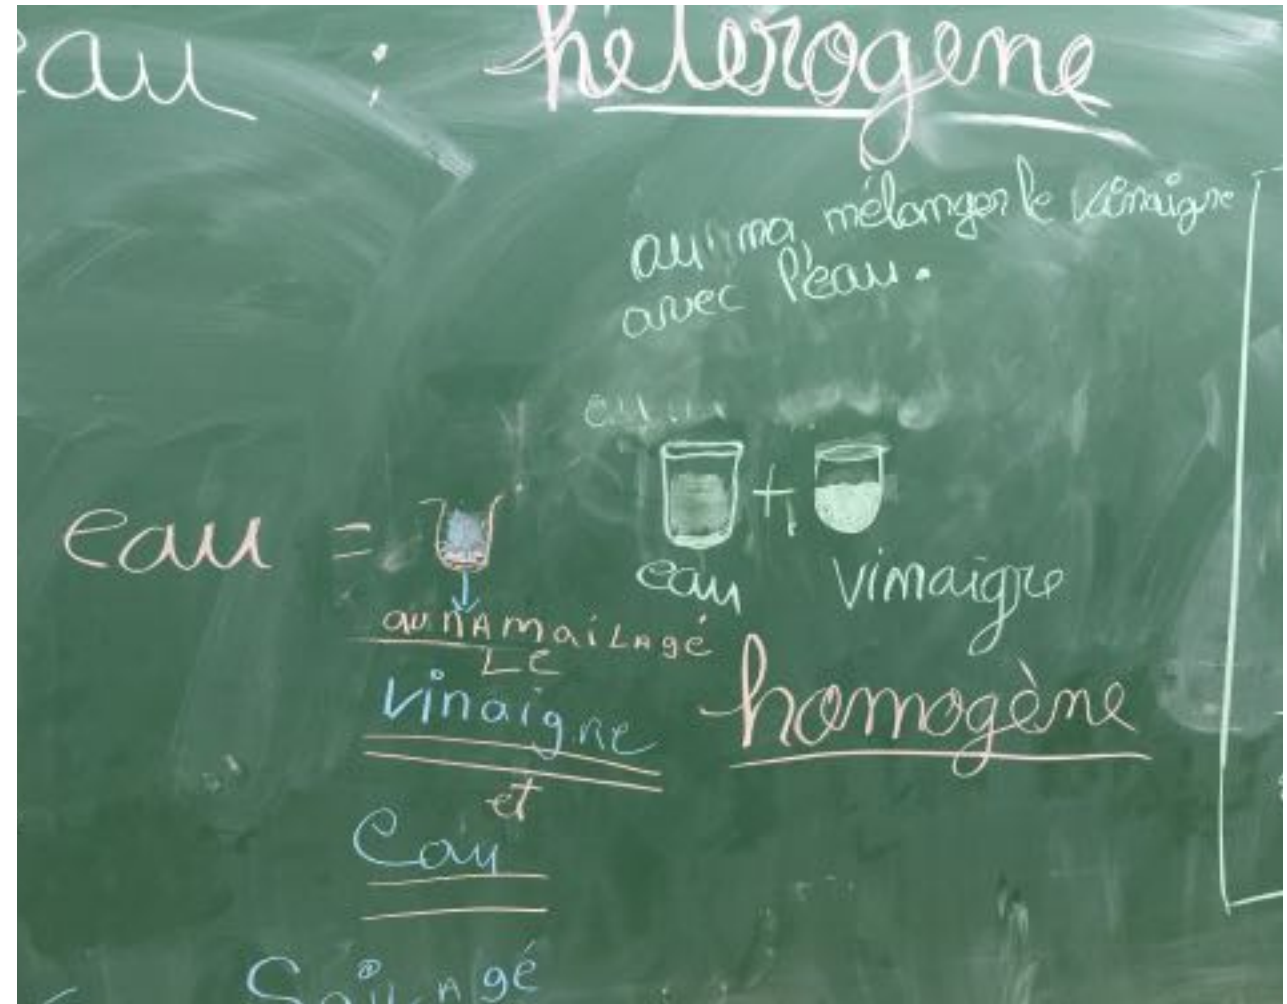 eau : hétérogène
au ma mélanger le vinaigre
avec l'eau.
eau =
eau + vinaigre
au nA maiLAgé
Le
Vinaigre
et
Eau
homogène